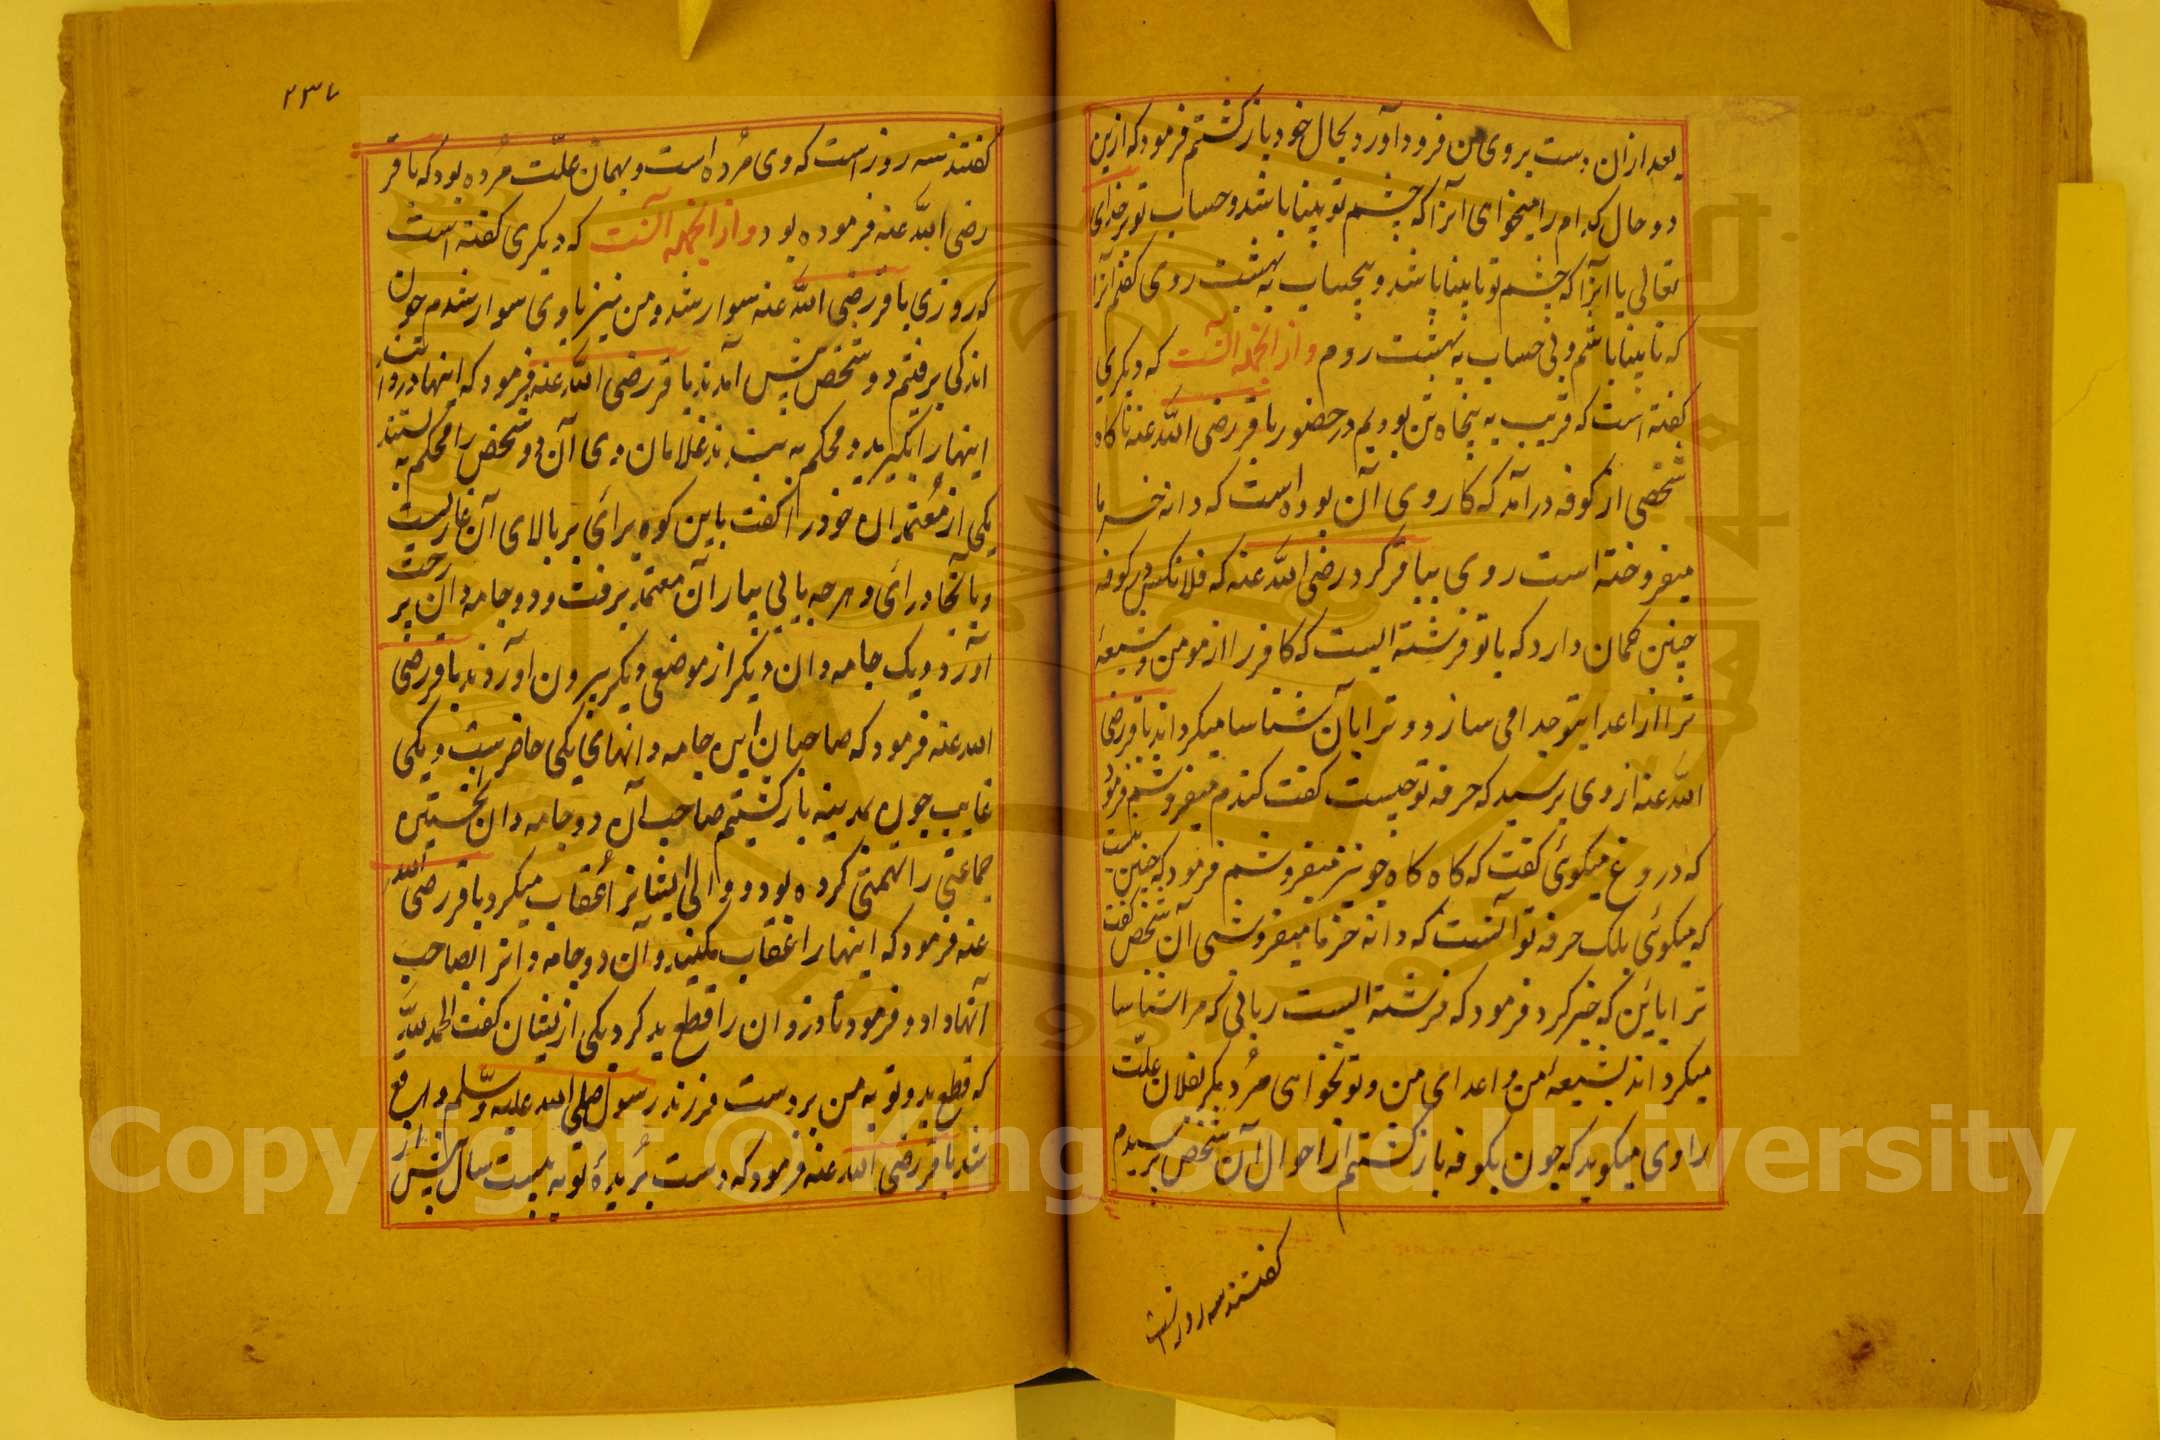 بعد ازان دست بروی من فرود آورد بحال خود باز گشتم فرمود که ازین
دو حال کدام را میخوای آنرا که چشم تو بینا باشد و حساب تو بر خدای
تعالی یا آنرا که چشم تو نابینا باشد و بیحساب به بهشت روی گفتم آنرا
که نابینا باشم و بی حساب به بهشت روم و از انجمله آنست که دیگری
گفته است که قریب به پنجاه تن بودیم در حضور باقر رضی الله عنه ناکاه
شخصی از کوفه در آمد که کار وی آن بوده است که دانه خرما
میفروخته است روی بباقر کرد رضی الله عنه که فلانکس در کوفه
چنین گمان دارد که با تو فرشته ایست که کافر را از مومن و شیعهٔ
ترا از اعدا بتو جدا می سازد و ترا بآن شناسا میگرداند باقر رضی
الله عنه از وی پرسید که حرفه تو چیست گفت گندم میفروشم فرمود
که دروغ میگوئی گفت که گاه گاه جو نیز میفروشم فرمود که چنین نیست
که میگوئی بلک حرفه تو آنست که دانه خرما میفروشی آن شخص گفت
ترا باین که خبر کرد فرمود که فرشته ایست ربانی که مرا شناسا
میگرداند بشیعهٔ من و اعدای من و تو نخواهی مُرد مگر بفلان علّت
راوی میگوید که چون بکوفه باز گشتم از احوال آن شخص پرسیدم
گفتند سه روز است
۲۳۷
گفتند سه روز است که وی مُرده است و بهمان علّت مُرده بود که باقر
رضی الله عنه فرموده بود و از انجمله آنست که دیگری گفته است
که روزی باقر رضی الله عنه سوار شد و من نیز با وی سوار شدم چون
اندکی برفتیم دو شخص پیش آمدند باقر رضی الله عنه فرمود که اینها دزدانند
اینها را بگیرید و محکم به بندند غلامان وی آن دو شخص را محکم به بستند
یکی از مُعتمدان خود را گفت باین کوه برای بر بالای آن غاریست
و بآنجا درای و هرچه یابی بیار آن معتمد برفت و دو جامه دان پر رخت
آورد و یک جامه دان دیگر از موضعی دیگر بیرون آوردند باقر رضی
الله عنه فرمود که صاحبان این جامه دانهای یکی حاضرست و یکی
غایب چون بمدینه باز گشتیم صاحب آن دو جامه دان نخستین
جماعتی را تهمتی کرده بود و والی ایشانرا عُقاب میکرد باقر رضی الله
عنه فرمود که اینها را عقاب مکنید و آن دو جامه دانرا بصاحب
آنها داد و فرمود تا دزدان را قطع ید کرد یکی از یشان گفت الحمد لله
که قطع ید و توبه من بر دست فرزند رسول صلی الله علیه وسلم واقع
شد باقر رضی الله عنه فرمود که دست بُریدهٔ تو به بیست سال پیش از